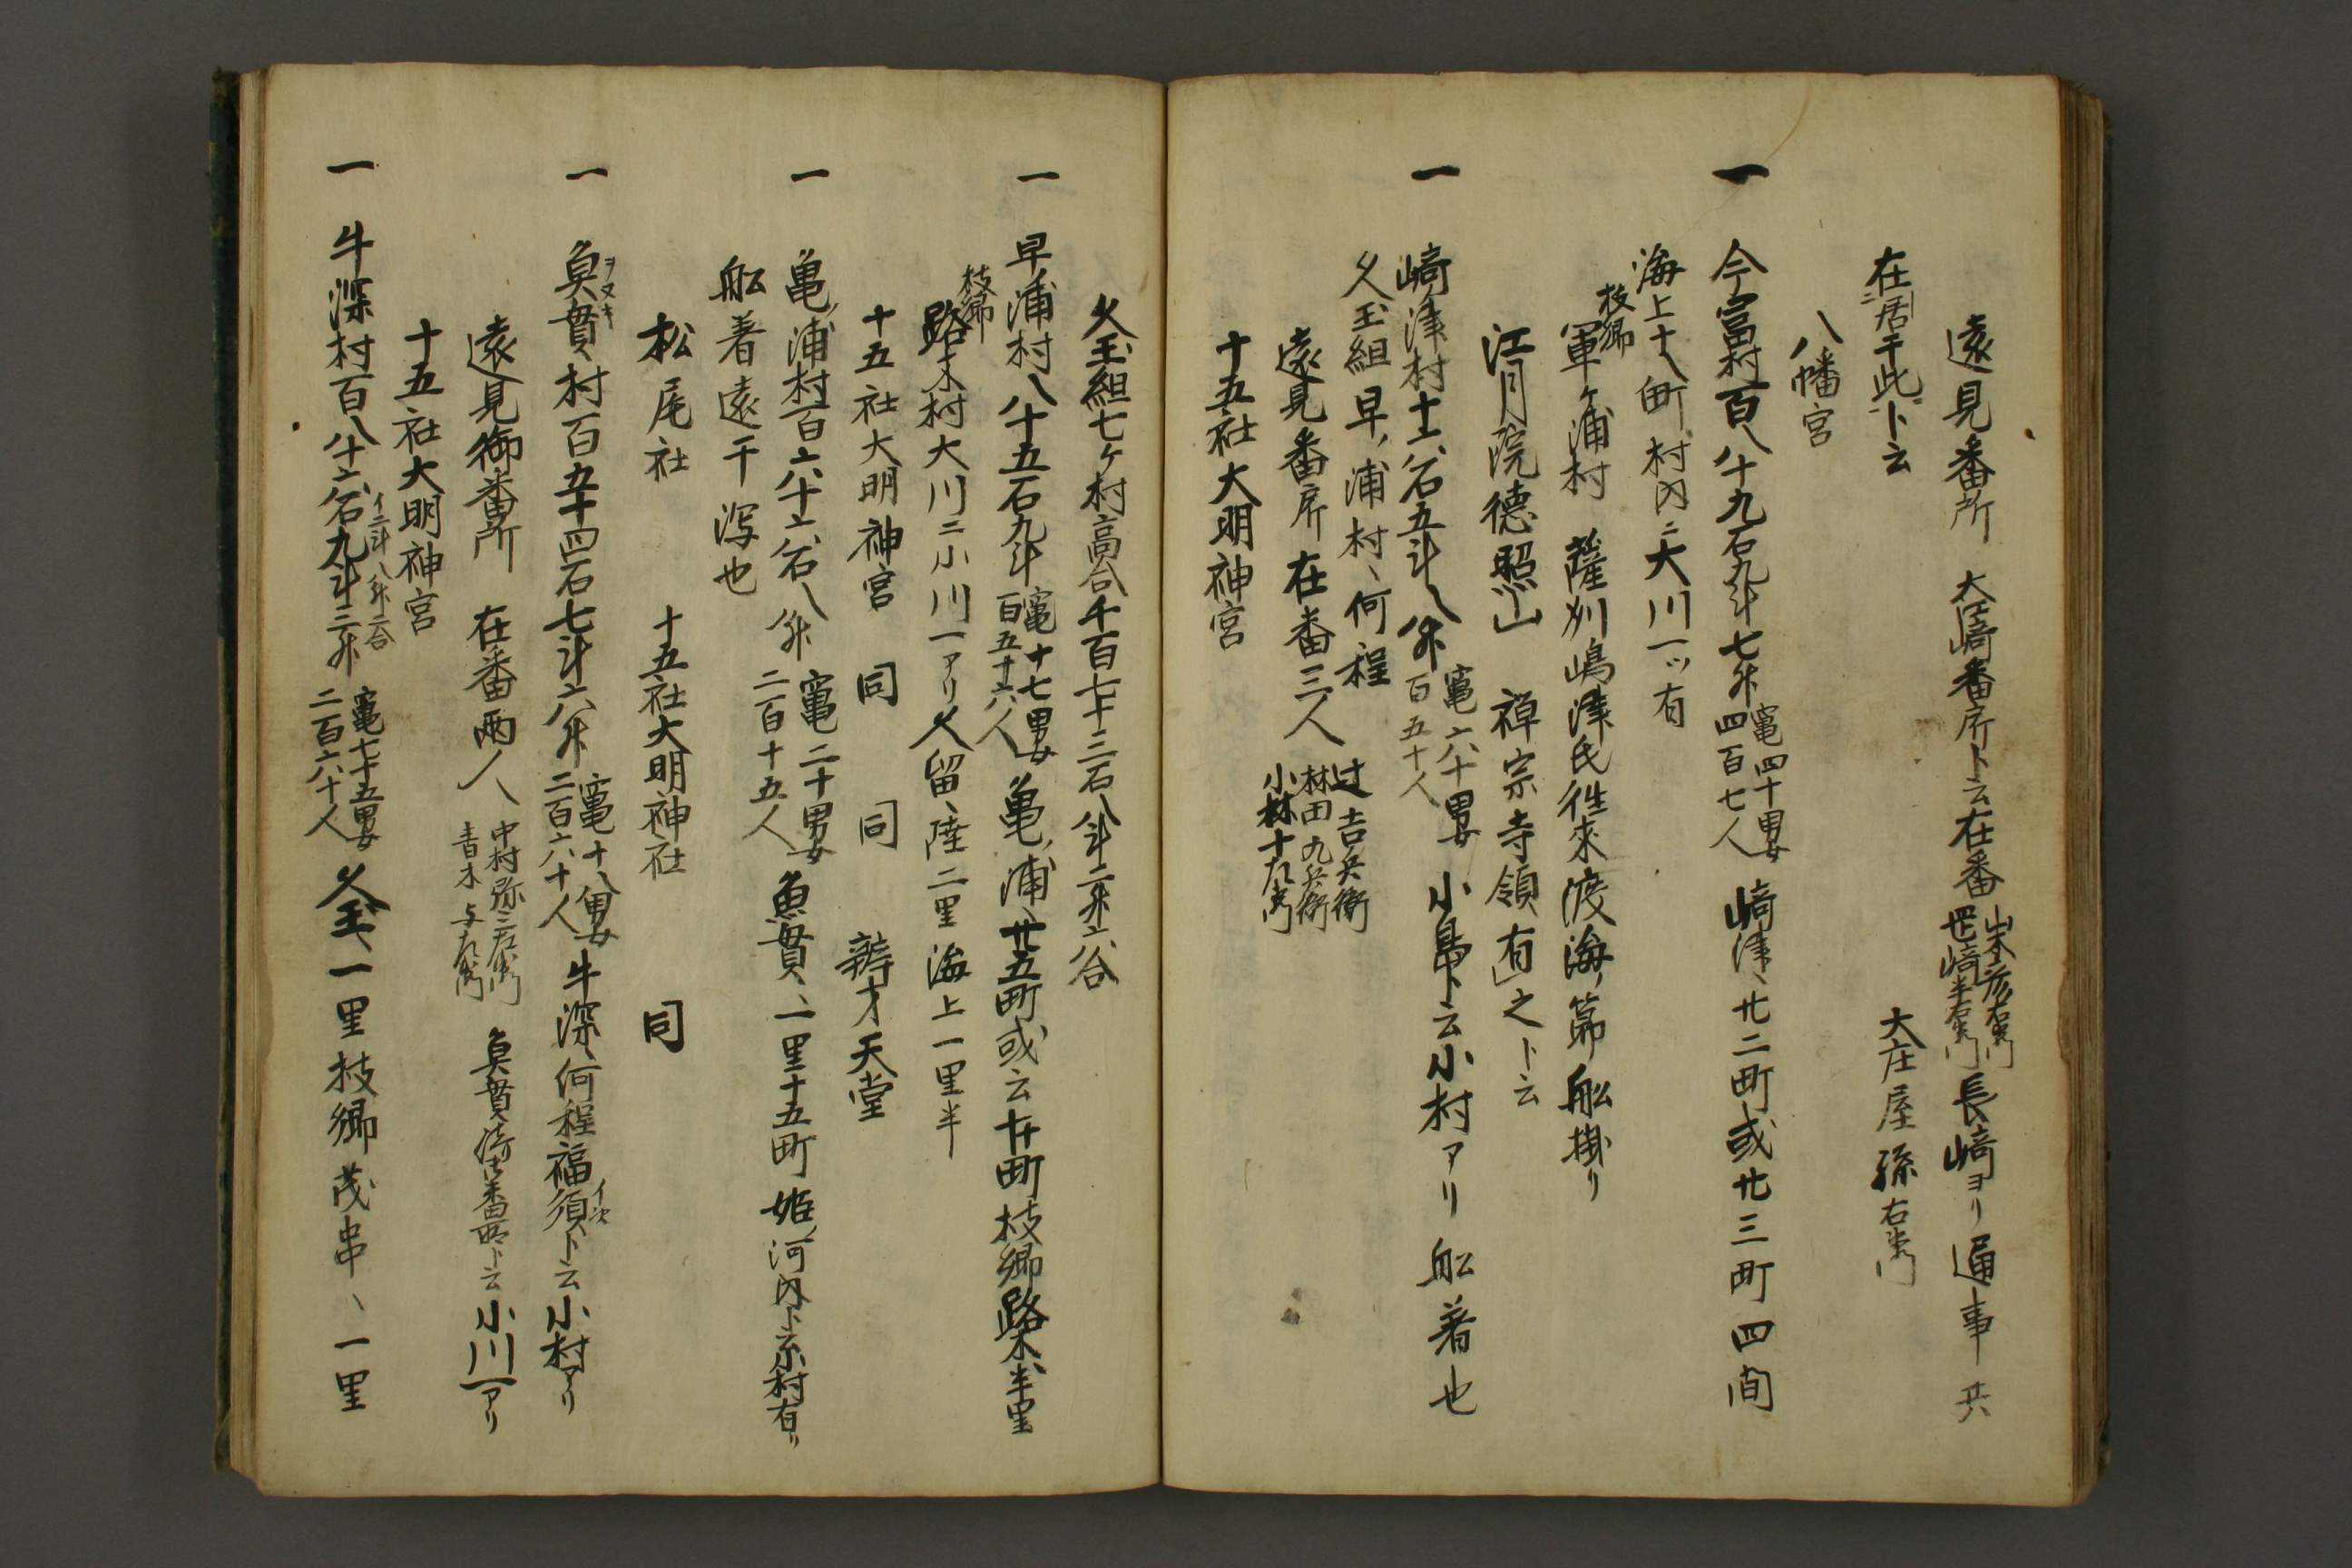 遠見番所 大江﨑番所ト云在番 山本彦右衛門 長﨑ヨリ通事共
㟢﨑半右衛門
在居于此ト云 大庄屋 孫右衛門
八幡宮
一 今富村百八十九石九斗七升 竈四十男女 﨑津ヘ廿二町或廿三町四間
四百七人
海上十八町村内ニ大川一ツ有
枝郷
軍ヶ浦村 薩刕嶋津氏徃来渡海ノ節舩掛リ
江月院徳照山 禅宗寺領有之ト云
一 﨑ノ津村十六石五斗八升 竈六十男女 小島ト云小村アリ舩着也
百五十人
久玉組早ノ浦村ヘ何程
遠見番所在番三人 辻吉兵衛
林田九兵衛
小林十左衛門
十五社大明神宮
久玉組七ヶ村高合千百七十三石八斗二升六合
一 早浦村八十五石九斗 竈十七男女 亀ノ浦ヘ廿五町或云廿町枝郷路木ヘ半里
百五十六人
枝郷
路木村大川二小川一アリ久留ヘ陸二里海上一里半
十五社大明神宮 同 同 辨才天堂
一 亀ノ浦村百六十六石八升 竈二十男女 魚貫ヘ一里十五町姫ノ河内ト云小村有リ
二百十五人
舩着遠干潟也
松尾社 十五社大明神社 同
一 魚貫村百五十四石七斗六升 竈十八男女 牛深ヘ何程福須ト云小村アリ
ヲヌキ
二百六十人
遠見御番所 在番両人 中村弥三左衛門 魚貫﨑御番所ト云小川一アリ
青木与左衛門
十五社大明神宮
一 牛深村百八十六石九斗三升 竈七十五男女 久玉ヘ一里枝郷茂串ヘ一里
イ二斗八升二合
二百六十人